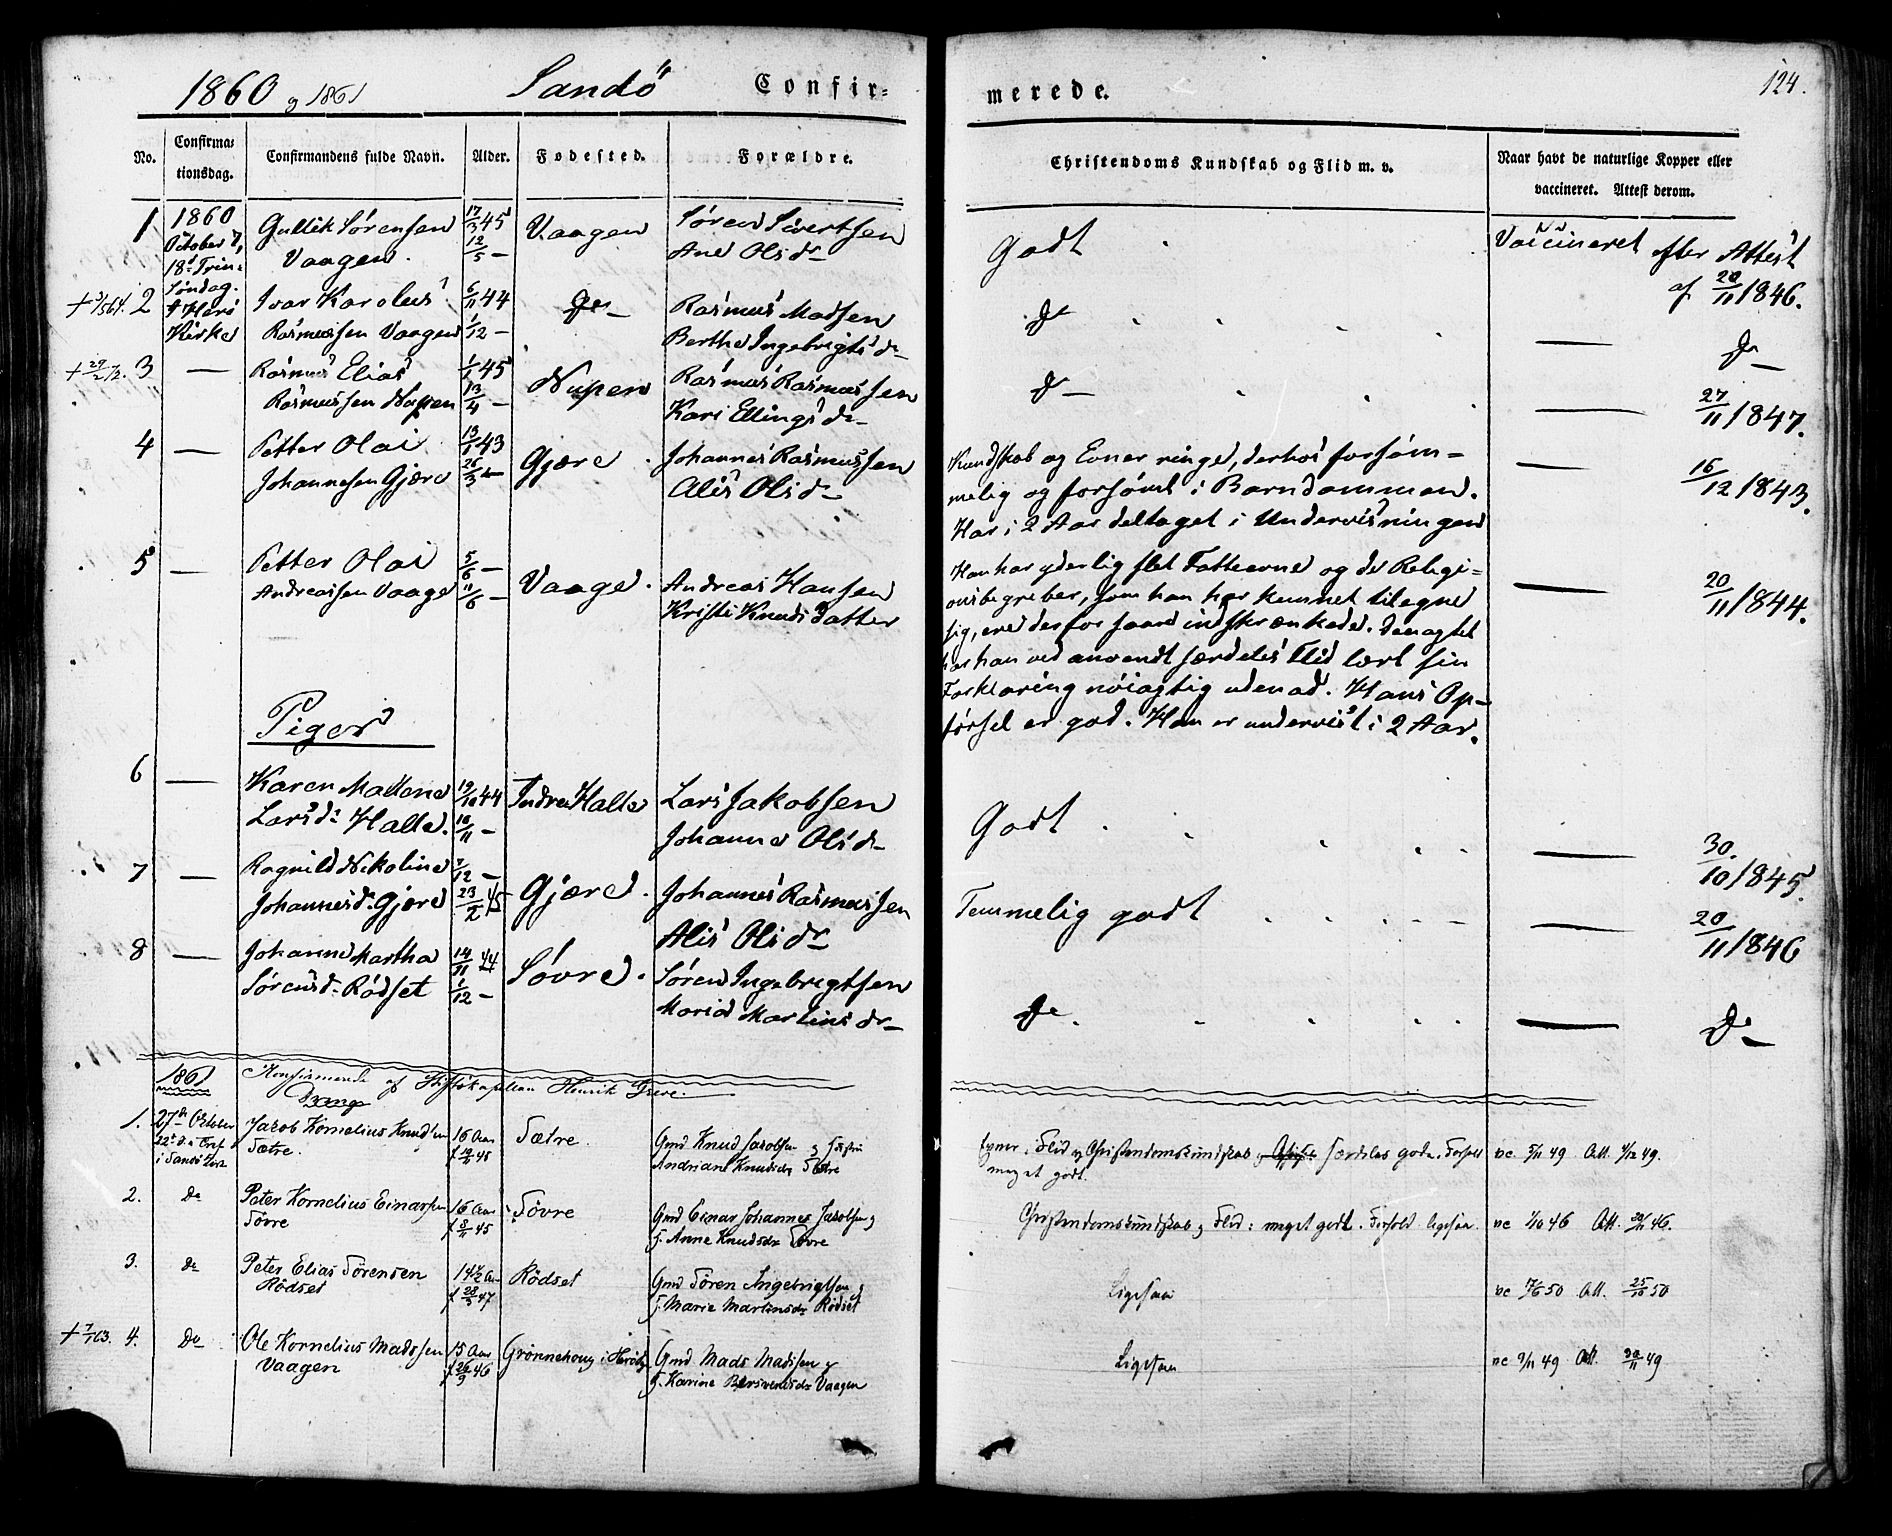 1860 og 1861 Sandö Confir=
merede. 124.
No. Confirma=tionsdag. Confirmandens fulde Navn. Alder. Fødested. Forældre.
Christendoms Kundskab og Flid m. v. Naar havt de naturlige Kopper eller vaccineret. Attest derom.
1 1860 Gullik Sörensen 17/3 45 Vaagen Sören Sivertsen
October 7, Vaagen. 12/5 – Ane Olsdr
18d Trin= Godt Vaccineret efter Attest
Söndag. af 20/11 1846.
+ 3/5 64. 2 i Herö Ivar Karolus 6/11 44 Do Rasmus Madsen
Kirke Rasmussen Vaagen 1/12 – Berthe Ingebrigtsdr
Do — Do
+ 29/2 72. 3 — Rasmus Elias 1/1 45 Nupen Rasmus Rasmussen
Rasmussen Nupen 13/4 – Kari Ellingsdr
Do — 27/11 1847.
4 — Petter Olai 13/1 43 Gjære. Johannes Rasmussen
Johannesen Gjære 26/3 – Alis Olsdr
Kundskab og Evner ringe, derhos forsöm= — 16/12 1843.
melig og forsömt i Barndommen.
Har i 2 Aar deltaget i Undervisningen
5 — Petter Olai 5/6 – Vaage. Andreas Hansen
Andreassen Vaage 11/6 – Kristi Knudsdatter
Han har yderlig slet Fatteevne og de Religi=
onsbegreber, som han har kunnet tilegne — 20/11 1844.
sig, ere derfor saare indskrænkede. Desagtet
har han ved anvendt særdeles Flid lært sin
Forklaring nöiagtig udenad. Hans Op=
försel er god. Han er undervist i 2 Aar.
Piger
6 — Karen Mallene 19/10 44 Indre Halle Lars Jakobsen
Larsdr Halle. 10/11 – Johanne Olsdr
Godt — 30/10 1845.
7 — Ragnild Nikoline 7/12 – Gjære. Johannes Rasmussen
Johannesd. Gjære 23/2 45 Alis Olsdr
Temmelig godt — 20/11 1846
8 — Johanne Martha 14/11 44 Sövre. Sören Ingebrigtsen
Sörensd. Rödset 1/12 – Marie Martinsdr
Do. — Do
1861 Konfirmerede af Stiftskapellan Henrik Greve.
Drenge
1. 27de October Jacob Kornelius Knudsen 16 Aar Sætre. Gmd Knud Jacobsen og Hustru
22de S. e. Tref Sætre. f 12/10 45 Andriane Knudsdr Sætre
i Sandö Kirke
Evner, Flid og Christendomskundskab særdeles gode. Forhold vc 5/11 49 Att. 4/12 49.
meget godt.
2. Do Peter Kornelius Einarsen 16 Aar Sövre Gmd Einar Johannes Jacobsen og
Sövre f 8/11 45 H. Anne Knudsdr Sövre
Christendomskundskab og Flid: meget godt. Forhold ligesaa. vc 1/10 46 Att. 20/11 46.
3. Do Peter Elias Sörensen 14 1/2 Aar Rödset Gmd Sören Ingebrigtsen og
Rödset f 28/3 47 H. Marie Martinsdr Rödset
Ligesaa vc 17/6 50 Att. 25/10 50
+ 7/1 63. 4. Do Ole Kornelius Madssen 15 Aar Grönnehoug i Herö Gmd Mads Madssen og
Vaagen f 26/9 46 H. Karine Vaagen
Ligesaa vc 9/11 49 Att. 30/11 49